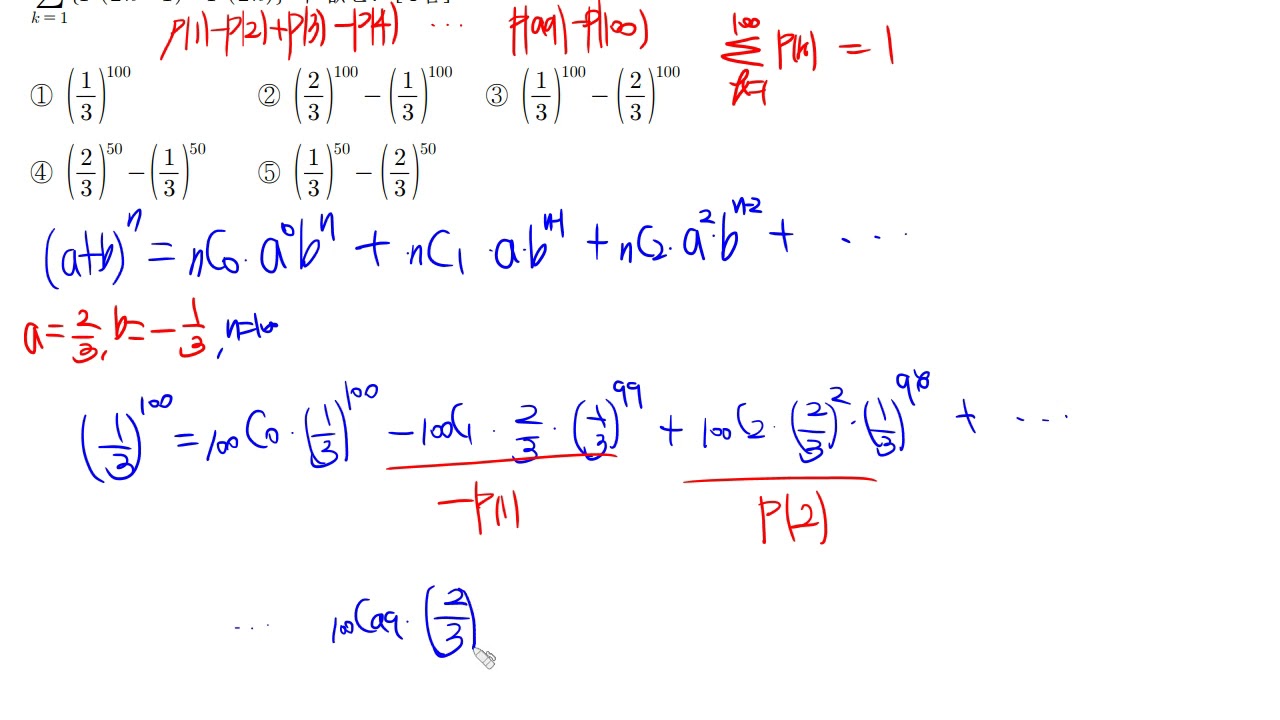 k = 1
P(1)-P(2)+P(3)-P(4) ... P(99)-P(100)
100 Σ k=1 P(k) = 1
① (1/3)^100 ② (2/3)^100 − (1/3)^100 ③ (1/3)^100 − (2/3)^100
④ (2/3)^50 − (1/3)^50 ⑤ (1/3)^50 − (2/3)^50
(a+b)^n = nC0 · a^0 b^n + nC1 · a · b^n-1 + nC2 · a^2 · b^n-2 + ...
a = 2/3, b = − 1/3, n=100
(1/3)^100 = 100C0 · (1/3)^100 − 100C1 · 2/3 · (1/3)^99 + 100C2 · (2/3)^2 · (1/3)^98 + ...
−P(1) P(2)
... 100C99 · (2/3)